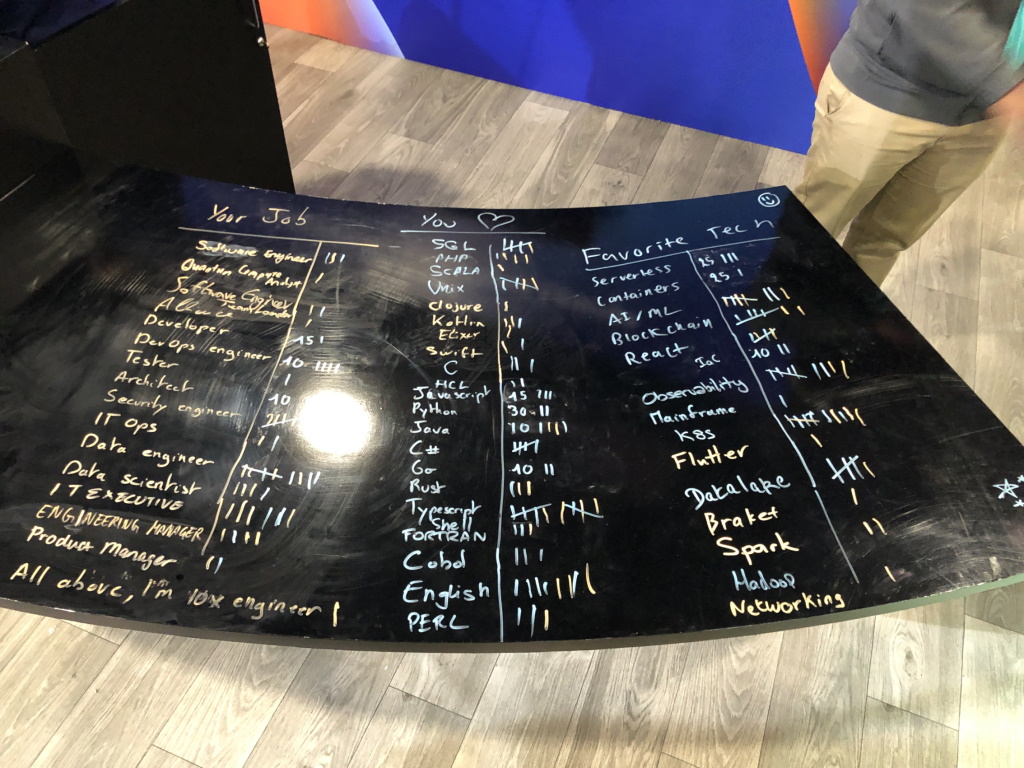 Your Job
Software Engineer
Quantum Compute
Analyst
Software Engineer
Alliance Team Leader
Developer 15
DevOps engineer 10
Tester
Architect 10
Security engineer
IT Ops
Data engineer
Data scientist
IT EXECUTIVE
ENGINEERING MANAGER
Product Manager
All above, I'm 10x engineer
You ♡
SQL
PHP
SCALA
Unix
Clojure
Kotlin
Elixir
Swift
C
HCL
Javascript 15
Python 30
Java 10
C#
Go 10
Rust
Typescript
Shell
FORTRAN
Cobol
English
PERL
Favorite Tech
Serverless 25
Containers 25
AI/ML
Blockchain
React
IaC 10
Observability
Mainframe
K8s
Flutter
Datalake
Braket
Spark
Hadoop
Networking